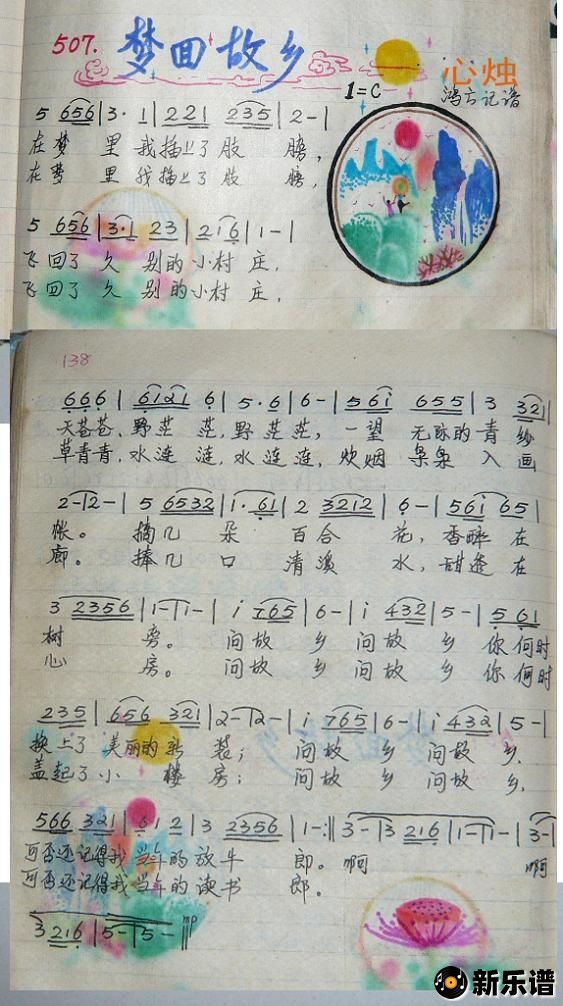 507. 梦回故乡
心烛
1=C 鸿云记谱
5 656 | 3· 1 | 2 2 1 2 3 5 | 2 - |
在梦 里 我插上了肢 膀,
在梦 里 我插上了肢 膀,
5 656 | 3·1 23 | 216 | 1 - |
飞回了 久 别的小村 庄,
飞回了 久 别的小村 庄,
138
666 | 6121 6 | 5·6 | 6 - | 561 655 | 3 321 |
天苍苍,野茫 茫,野茫茫,一望 无际的青纱
草青青,水涟 涟,水涟涟,炊烟 袅袅 入 画
2 - | 2 - | 5 6532 | 1·61 | 2 3212 | 6 - | 561 65 |
帐。 摘几 朵 百合 花,香醉 在
廊。 捧几 口 清溪 水,甜透 在
3 2356 | 1 - | 1 - | i 765 | 6 - | i 432 | 5 - | 5 61 |
树 旁。 问故 乡 问故 乡 你何时
心 房。 问故 乡 问故 乡 你何时
235 | 656 321 | 2 - | 2 - | i 765 | 6 - | i 432 | 5 - |
换上了 美丽的新 装; 问故 乡 问故 乡,
盖起了小 楼房; 问故 乡 问故 乡,
566 321 | 61 2 | 3 2356 | 1 - :|| 3 - | 3 216 | 1 - | 1 - | 3 - |
可否还记得我当年的放牛 郎。啊 啊
可否还记得我当年的读书 郎。
3 216 | 5 - | 5 - ||| mp
新乐谱